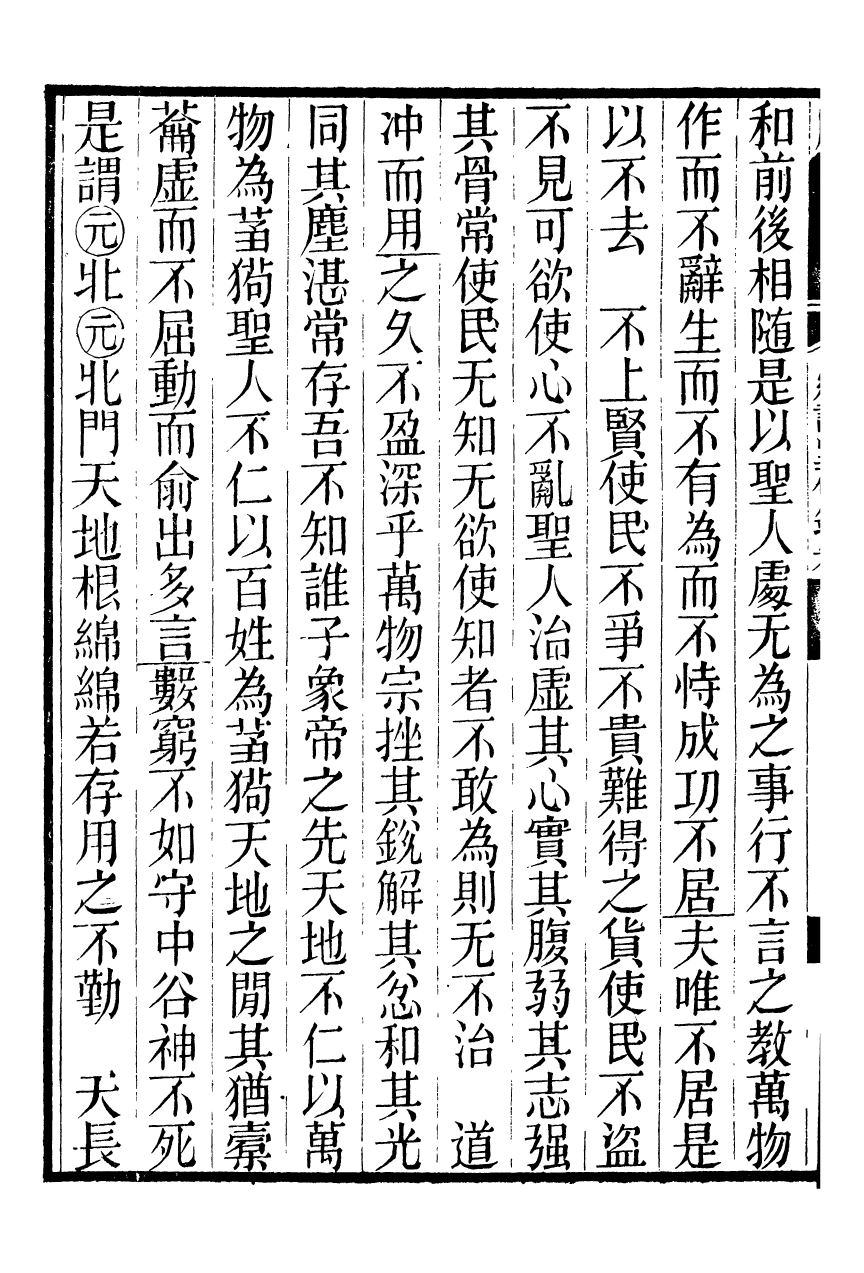 和前後相随是以聖人處无為之事行不言之教萬物
作而不辭生而不有為而不恃成功不居夫唯不居是
以不去　不上賢使民不爭不貴難得之貨使民不盜
不見可欲使心不亂聖人治虛其心實其腹弱其志强
其骨常使民无知无欲使知者不敢為則无不治　道
冲而用之久不盈深乎萬物宗挫其銳解其忿和其光
同其塵湛常存吾不知誰子象帝之先天地不仁以萬
物為茁猲聖人不仁以百姓為茁猲天地之閒其猶橐
蘥虛而不屈動而俞出多言數窮不如守中谷神不死
是謂元牝元牝門天地根綿綿若存用之不勤　天長